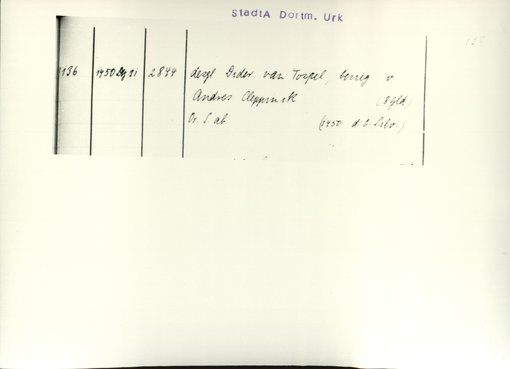 StadtA Dortm. Urk
138
1136 1450 Dez 31 2844 desgl Dider van Torpel, besieg v
Andres Cleppinck (8 Gld)
Or. S ab. (1450 d. S. Silv.)